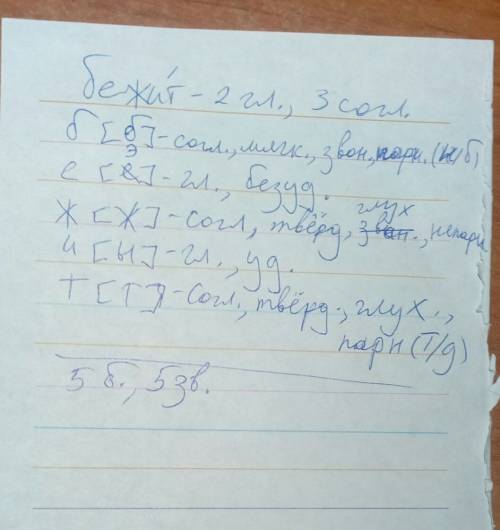 бежи́т - 2 гл., 3 согл.
б [б] - согл., мягк., звон., парн. (п/б)
е [э] - гл., безуд.
ж [ж] - согл, твёрд, глух., непарн
и [ы] - гл., уд.
т [т] - согл., твёрд., глух.,
парн (т/д)
5 б., 5 зв.